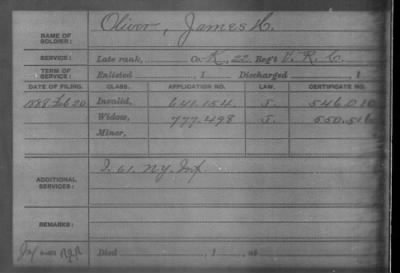 NAME OF SOLDIER: Oliver, James H.
SERVICE: Late rank, Co. K, 22 Reg't V. R. C.
TERM OF SERVICE: Enlisted , 1 Discharged , 1
DATE OF FILING. CLASS. APPLICATION NO. LAW. CERTIFICATE NO.
1888 Feb 20 Invalid, 641.154 J. 546.010
Widow, 777.498 J. 550.516
Minor,
ADDITIONAL SERVICES: I. 61. N.Y. Inf
REMARKS:
Died , 1 , at